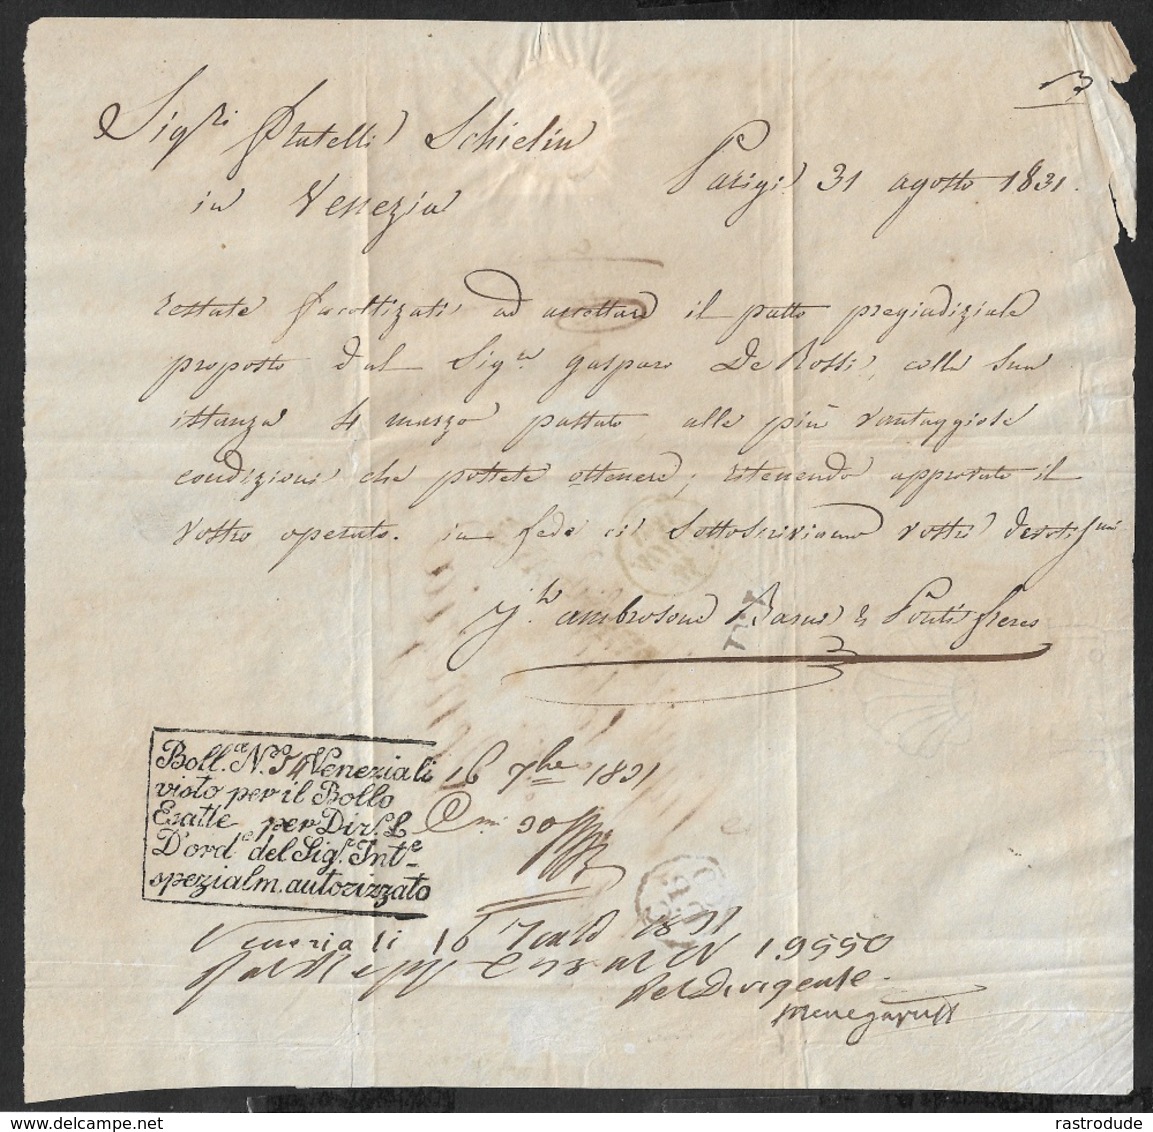 Sig.ri Fratelli Schielin
in Venezia
Parigi 31 agosto 1831.
restate facoltizzati ad accettare il patto pregiudiziale
proposto dal Sig.r gasparo De Rossi, colla sua
istanza 4 marzo passato, alle più vantaggiose
condizioni che potrete ottenere; ritenendo approvato il
vostro operato. in fede ci sottoscriviamo vostri devotissimi
ambrosoni & Ponti freres
Boll.e N.o 54 Venezia li
visto per il Bollo
Esatte per Dir. L
D'ord.e del Sig.r Int.e
spezialm. autorizzato
16 7bre 1831
Cmi 90
Venezia li 16 1831
N 19550
Pel Dirigente
rastrodude